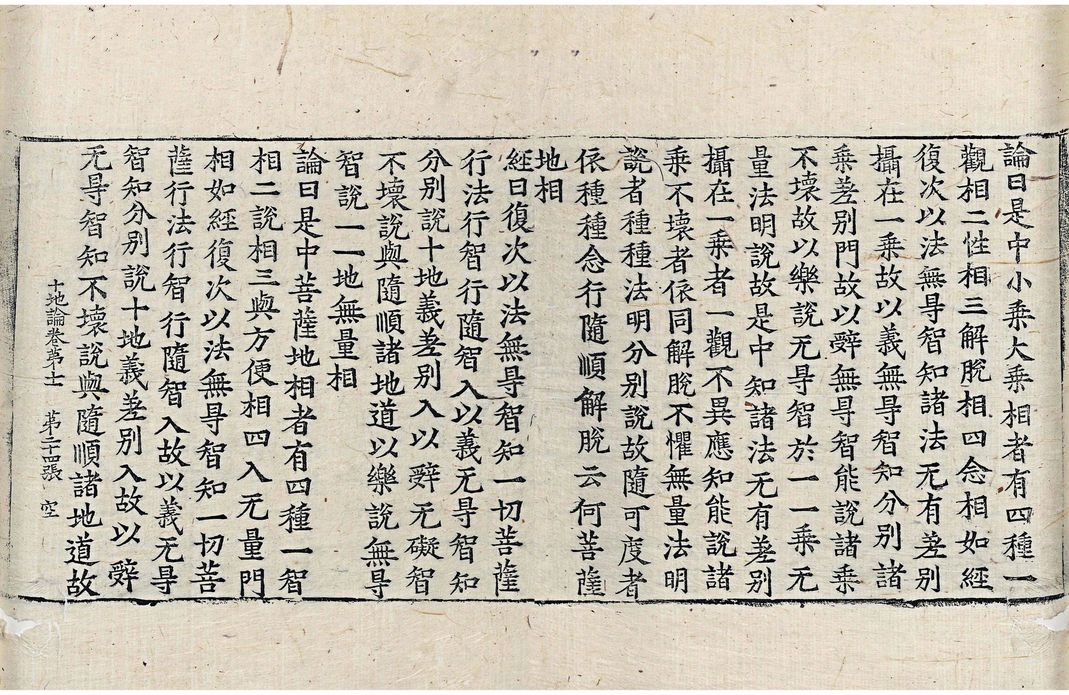 論曰是中小乘大乘相者有四種一
觀相二性相三解脫相四念相如經
復次以法無㝵智知諸法无有差別
攝在一乘故以義無㝵智知分別諸
乘差別門故以辤無㝵智能說諸乘
不壞故以樂說无㝵智於一一乘无
量法明說故是中知諸法无有差別
攝在一乘者一觀不異應知能說諸
乘不壞者依同解脫不懼無量法明
說者種種法明分別說故隨可度者
依種種念行隨順解脫云何菩薩
地相
經曰復次以法無㝵智知一切菩薩
行法行智行隨智入以義无㝵智知
分別說十地義差別入以辤无礙智
不壞說與隨順諸地道以樂說無㝵
智說一一地無量相
論曰是中菩薩地相者有四種一智
相二說相三與方便相四入无量門
相如經復次以法無㝵智知一切菩
薩行法行智行隨智入故以義无㝵
智知分別說十地義差別入故以辤
无㝵智知不壞說與隨順諸地道故
十地論卷第十一 第二十四張 空